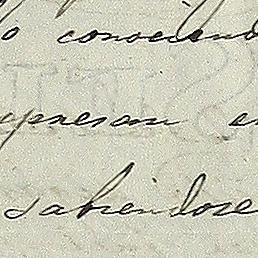 lo conociend
xpresan e
sabiendose